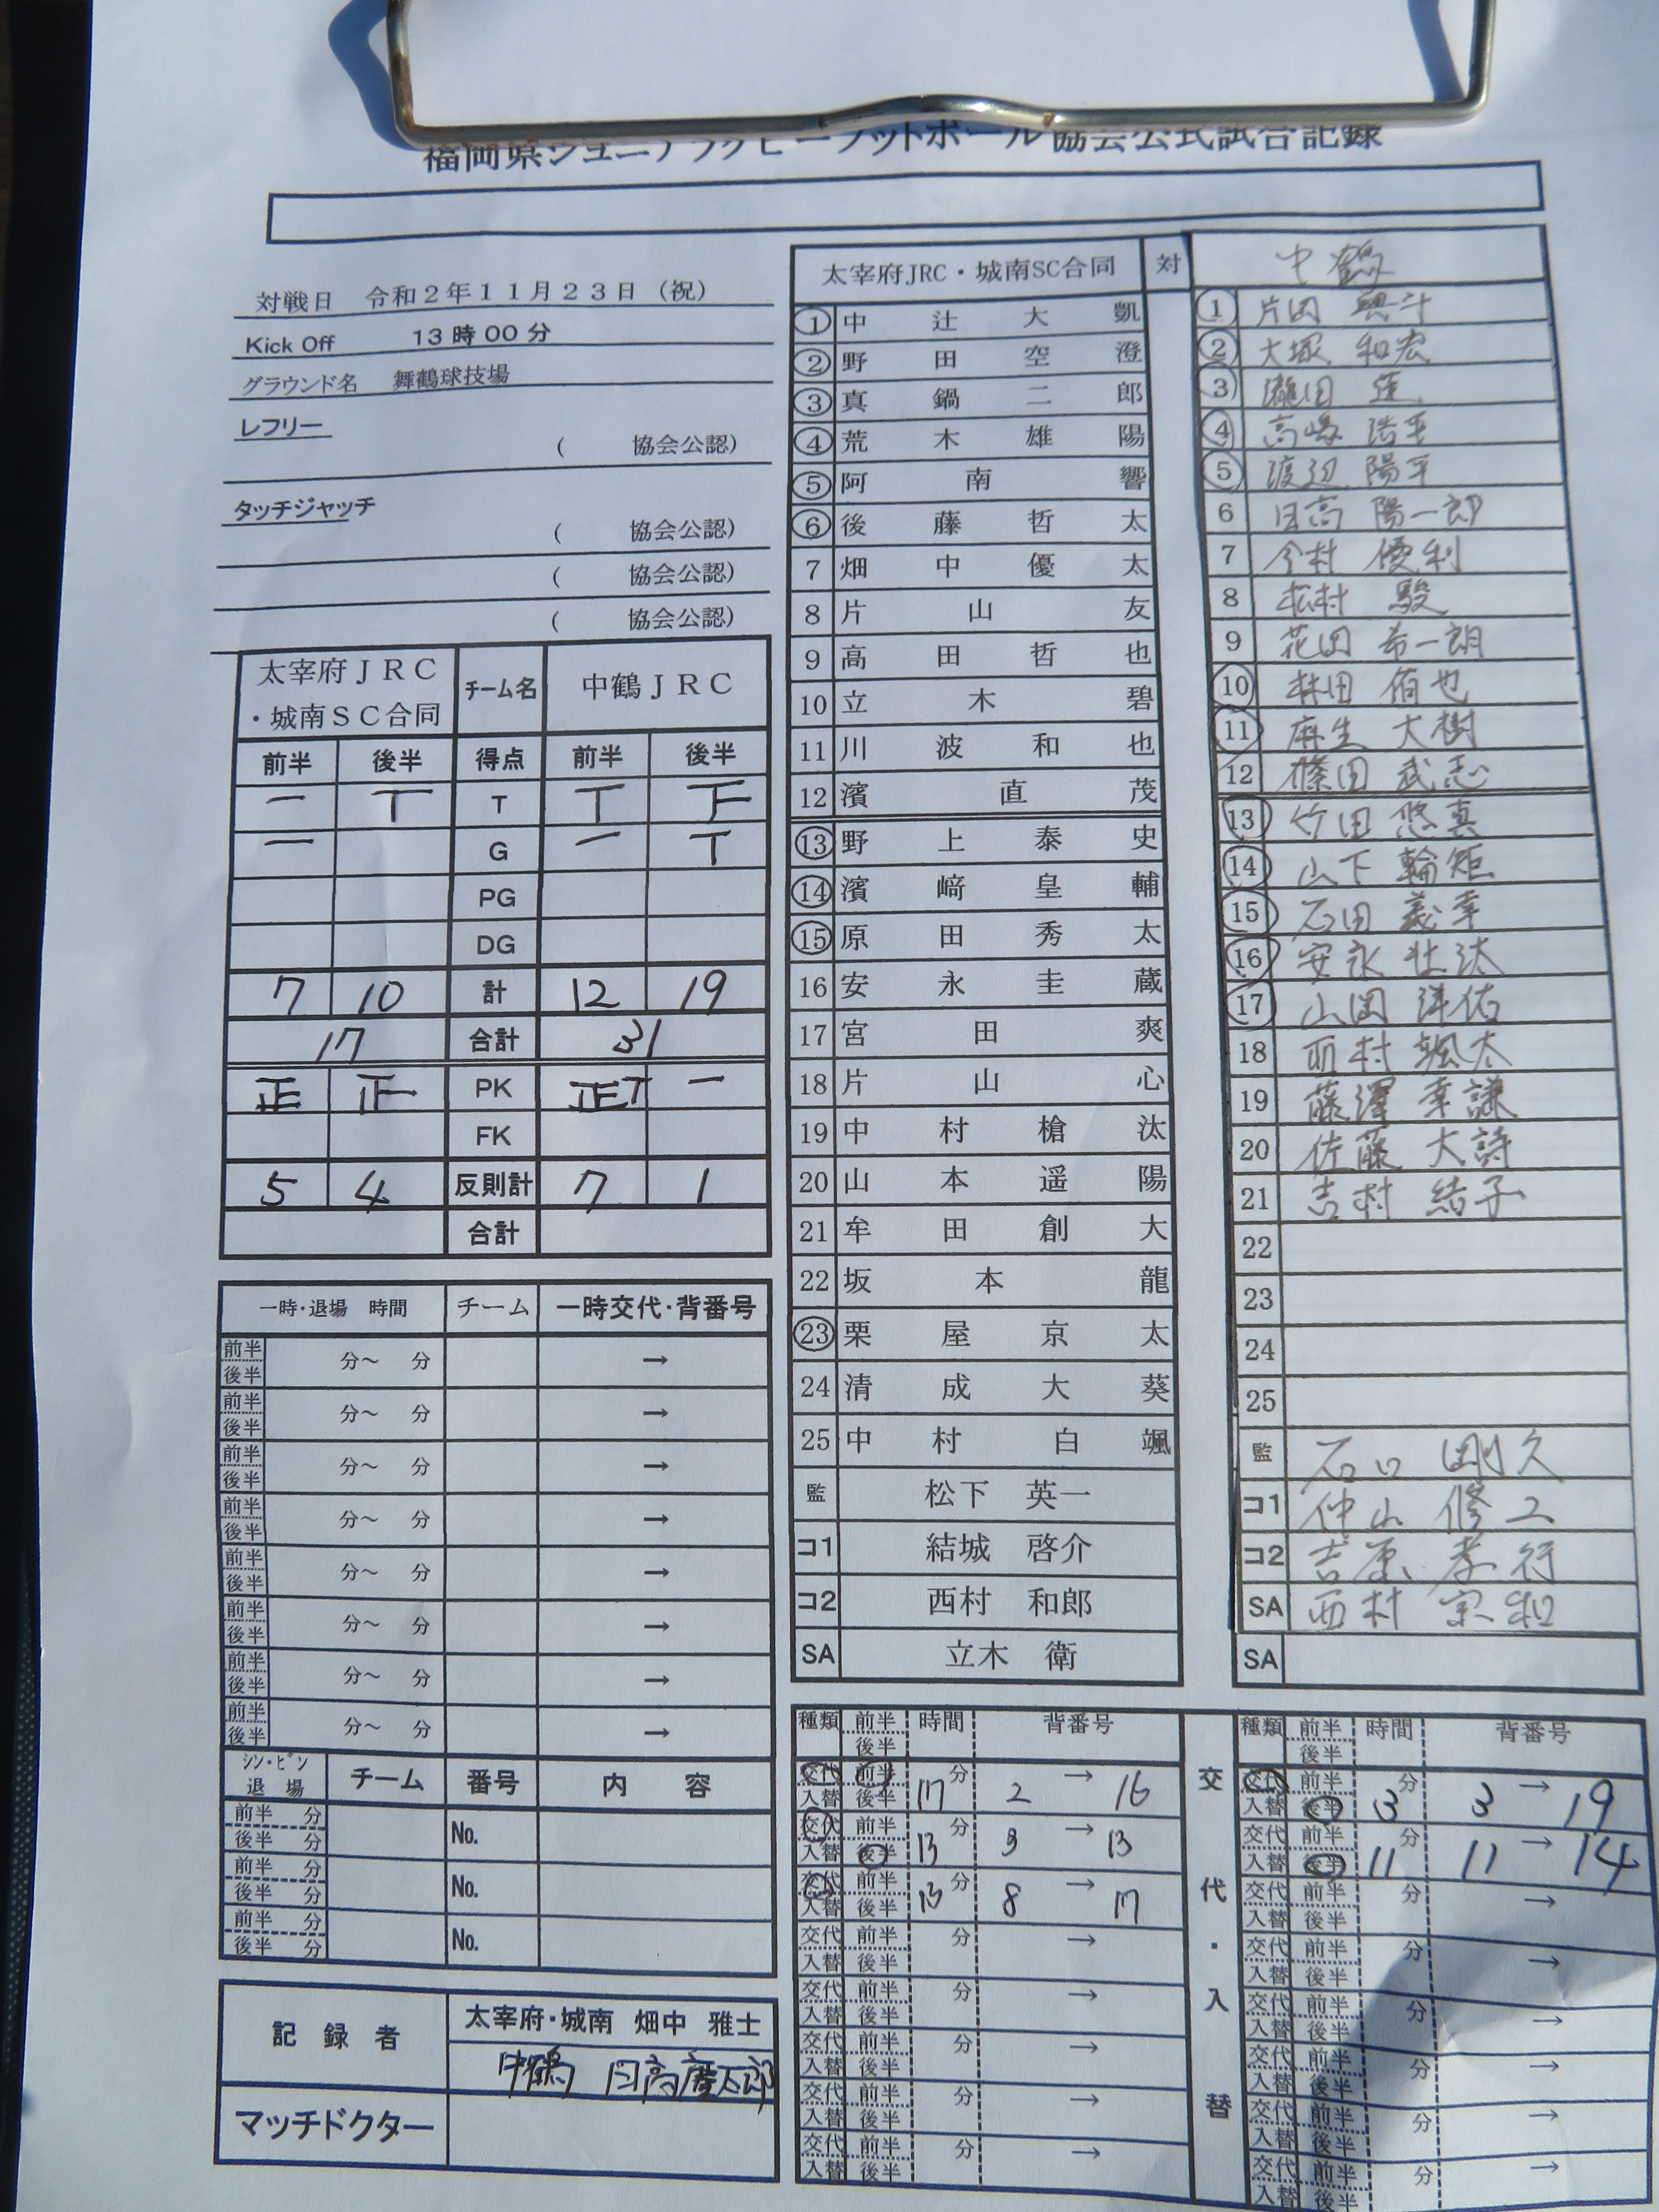 福岡県ジュニアラグビーフットボール協会公式試合記録
対戦日 令和2年11月23日（祝）
Kick Off 13時00分
グラウンド名 舞鶴球技場
レフリー
( 協会公認)
タッチジャッチ
( 協会公認)
( 協会公認)
( 協会公認)
太宰府JRC・城南SC合同 チーム名 中鶴JRC
前半 後半 得点 前半 後半
一 T T T 下
一 G 一 T
PG
DG
7 10 計 12 19
17 合計 31
正 正 PK 正T 一
FK
5 4 反則計 7 1
合計
一時・退場 時間 チーム 一時交代・背番号
前半 後半 分～ 分 →
前半 後半 分～ 分 →
前半 後半 分～ 分 →
前半 後半 分～ 分 →
前半 後半 分～ 分 →
前半 後半 分～ 分 →
前半 後半 分～ 分 →
前半 後半 分～ 分 →
シン・ビン 退場 チーム 番号 内容
前半 分 後半 分 No.
前半 分 後半 分 No.
前半 分 後半 分 No.
記録者 太宰府・城南 畑中 雅士
中鶴 日高
マッチドクター
太宰府JRC・城南SC合同 対 中鶴
① 中辻大凱
② 野田空澄
③ 真鍋二郎
④ 荒木雄陽
⑤ 阿南響
⑥ 後藤哲太
7 畑中優太
8 片山友
9 高田哲也
10 立木碧
11 川波和也
12 濱直茂
⑬ 野上泰史
⑭ 濱﨑皇輔
⑮ 原田秀太
16 安永圭蔵
17 宮田爽
18 片山心
19 中村槍汰
20 山本遥陽
21 牟田創大
22 坂本龍
㉓ 栗屋京太
24 清成大葵
25 中村白颯
監 松下 英一
コ1 結城 啓介
コ2 西村 和郎
SA 立木 衛
① 片岡
② 大塚 和宏
③ 瀧田 蓮
④ 高嶋 浩平
⑤ 渡辺 陽平
6 日高 陽一郎
7 今村 優利
8 松村 駿
9 花田 希一朗
⑩ 林田 侑也
⑪ 麻生 大樹
12 篠田 武志
⑬ 竹田 悠真
⑭ 山下 輪矩
⑮ 石田 義幸
⑯ 安永 壮汰
⑰ 山岡 洋佑
18 西村 颯太
19 藤澤 幸謙
20 佐藤 大詩
21 吉村 結子
22
23
24
25
監 石口 剛久
コ1 仲山 修二
コ2 吉原 孝行
SA 西村 宗和
SA
種類 前半 後半 時間 背番号
交代 入替 前半 後半 17 分 2 → 16
交代 入替 前半 後半 13 分 3 → 13
交代 入替 前半 後半 13 分 8 → 17
交代 入替 前半 後半 分 →
交代 入替 前半 後半 分 →
交代 入替 前半 後半 分 →
交代 入替 前半 後半 分 →
交代 入替 前半 後半 分 →
交代・入替
種類 前半 後半 時間 背番号
交代 入替 前半 後半 13 分 3 → 19
交代 入替 前半 後半 11 分 11 → 14
交代 入替 前半 後半 分 →
交代 入替 前半 後半 分 →
交代 入替 前半 後半 分 →
交代 入替 前半 後半 分 →
交代 入替 前半 後半 分 →
交代 入替 前半 後半 分 →